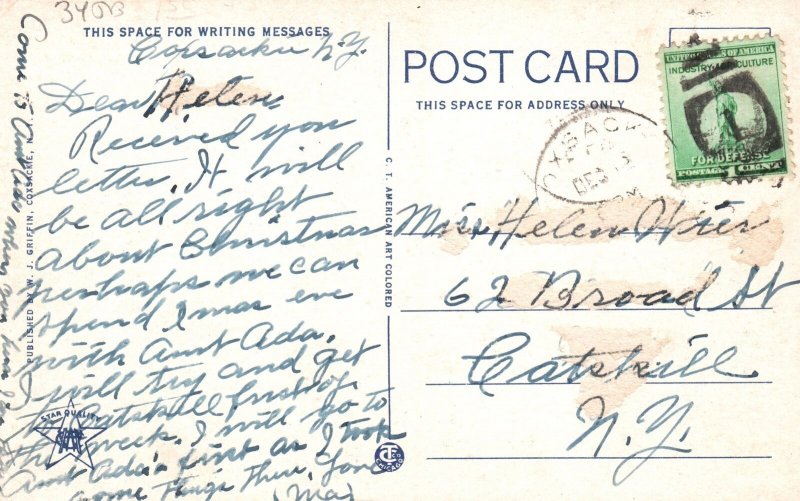 34513
THIS SPACE FOR WRITING MESSAGES
Coxsackie N.Y.
Dear Helen
Received you
letter. It will
be all right
about Christmas
perhaps we can
spend Xmas eve
with Aunt Ada.
I will try and get
to Catskill first of
the week. I will go to
Aunt Ada's first as I took
some things there, Love
(Ma)
Come to Aunt Ada's when you
PUBLISHED BY W. J. GRIFFIN, COXSACKIE, N.
STAR QUALITY
C. T. AMERICAN ART COLORED
CHICAGO
POST CARD
THIS SPACE FOR ADDRESS ONLY
DEC
UNITED STATES OF AMERICA
INDUSTRY AGRICULTURE
FOR DEFENSE
POSTAGE 1 CENT
Miss Helen Wier
62 Broad St
Catskill
N.Y.